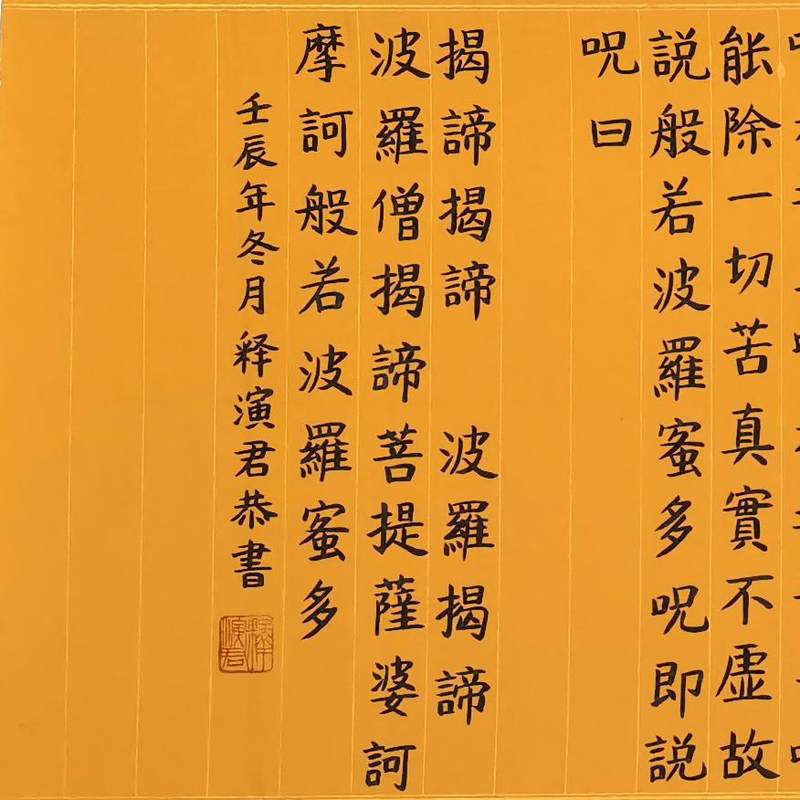 能除一切苦真實不虚故
説般若波羅蜜多呪即説
呪曰
揭諦揭諦 波羅揭諦
波羅僧揭諦菩提薩婆訶
摩訶般若波羅蜜多
壬辰年冬月释演君恭書